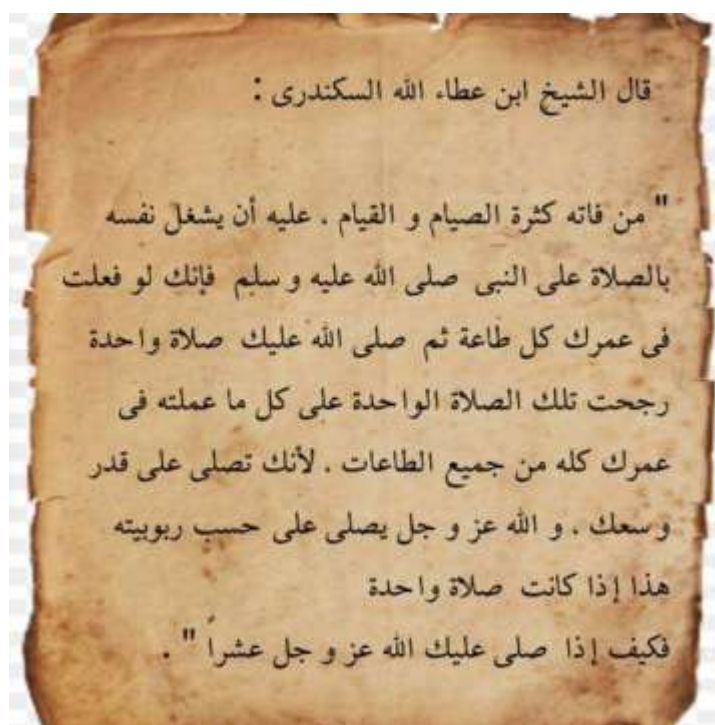 قال الشيخ ابن عطاء الله السكندرى :
" من فاته كثرة الصيام و القيام . عليه أن يشغل نفسه
بالصلاة على النبى صلى الله عليه و سلم فإنك لو فعلت
فى عمرك كل طاعة ثم صلى الله عليك صلاة واحدة
رجحت تلك الصلاة الواحدة على كل ما عملته فى
عمرك كله من جميع الطاعات . لأنك تصلى على قدر
وسعك . و الله عز و جل يصلى على حسب ربوبيته
هذا إذا كانت صلاة واحدة
فكيف إذا صلى عليك الله عز و جل عشراً " .